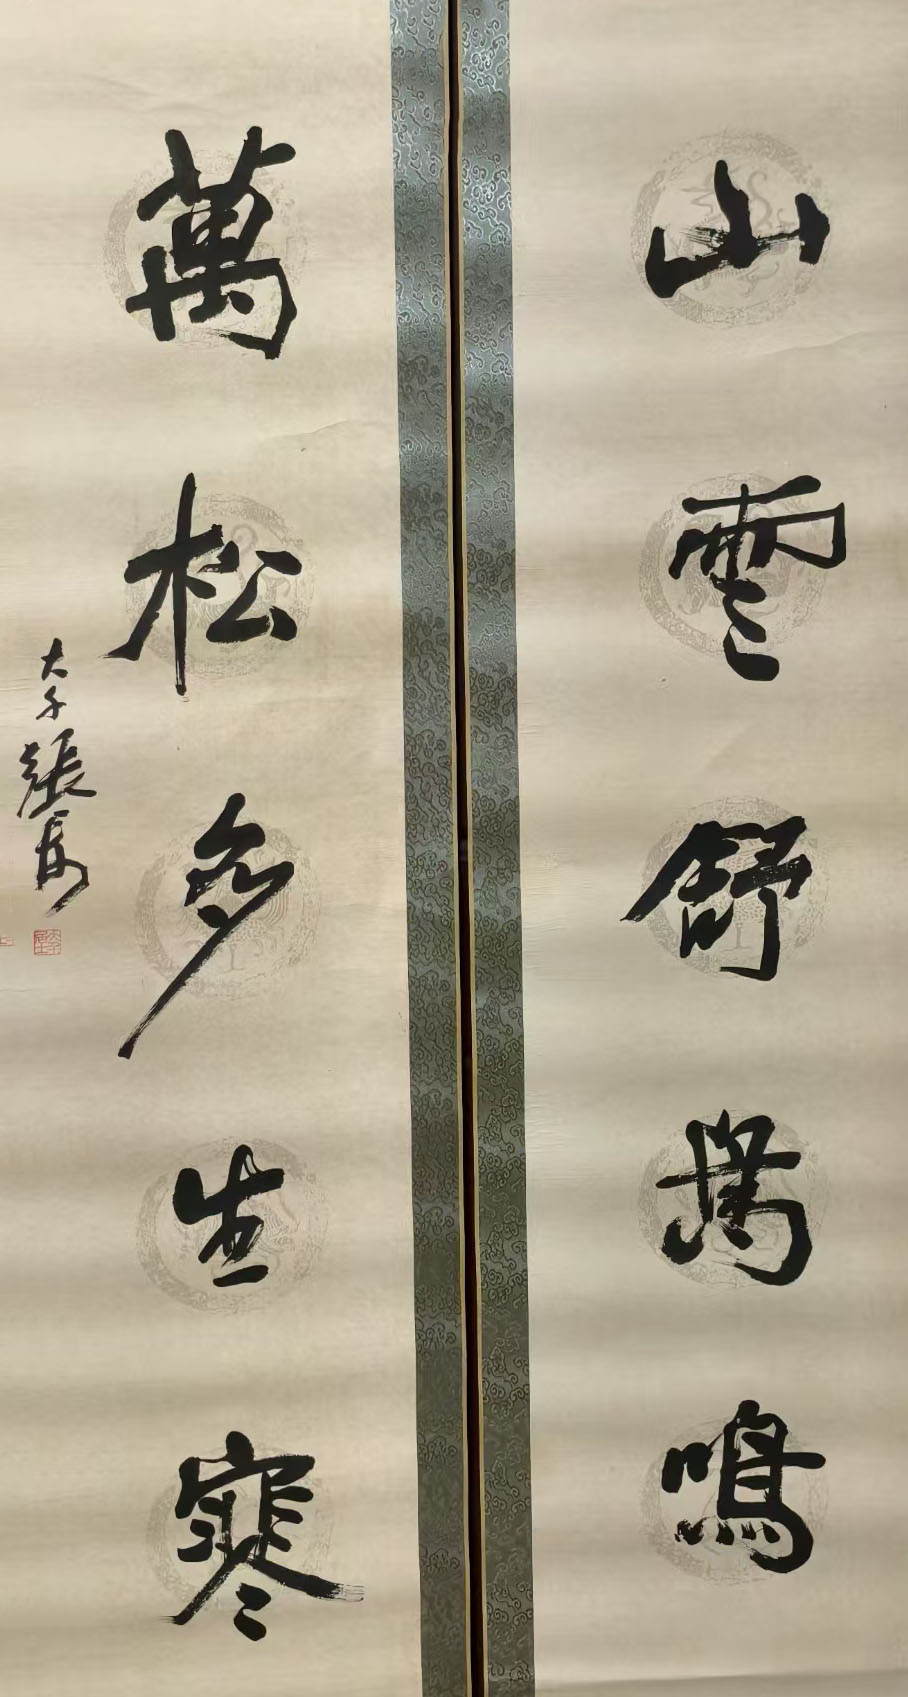 山雲舒鳴
萬松多生寒
大千張爰